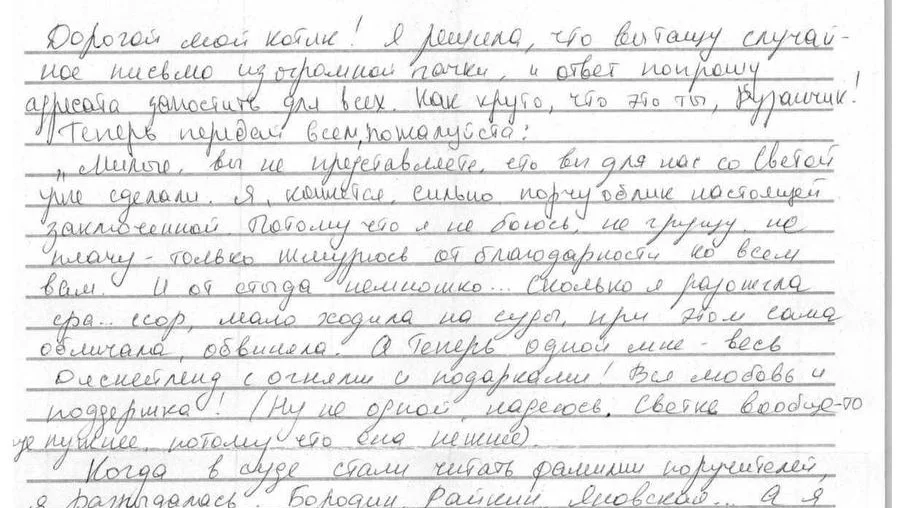 Дорогой мой котик! Я решила, что вытащу случай-
ное письмо из огромной пачки, и ответ попрошу
адресата запостить для всех. Как круто, что это ты, !
Теперь передай всем, пожалуйста:
„Милые, вы не представляете, что вы для нас со Светой
уже сделали. Я, кажется, сильно порчу облик настоящей
заключенной. Потому что я не боюсь, не грущу, не
плачу - только жмурюсь от благодарности ко всем
вам. И от стыда немножко... Сколько я разожгла
сра.. ссор, мало ходила на суды, при этом сама
обличала, обвиняла. А теперь одной мне - весь
Диснейленд с огнями и подарками! Вся любовь и
поддержка! (Ну не одной, надеюсь. Светке вообще-то
еще нужнее, потому что она нежнее).
Когда в суде стали читать фамилии поручителей,
я разрыдалась. Бородин, Райкин, Яновская... А я